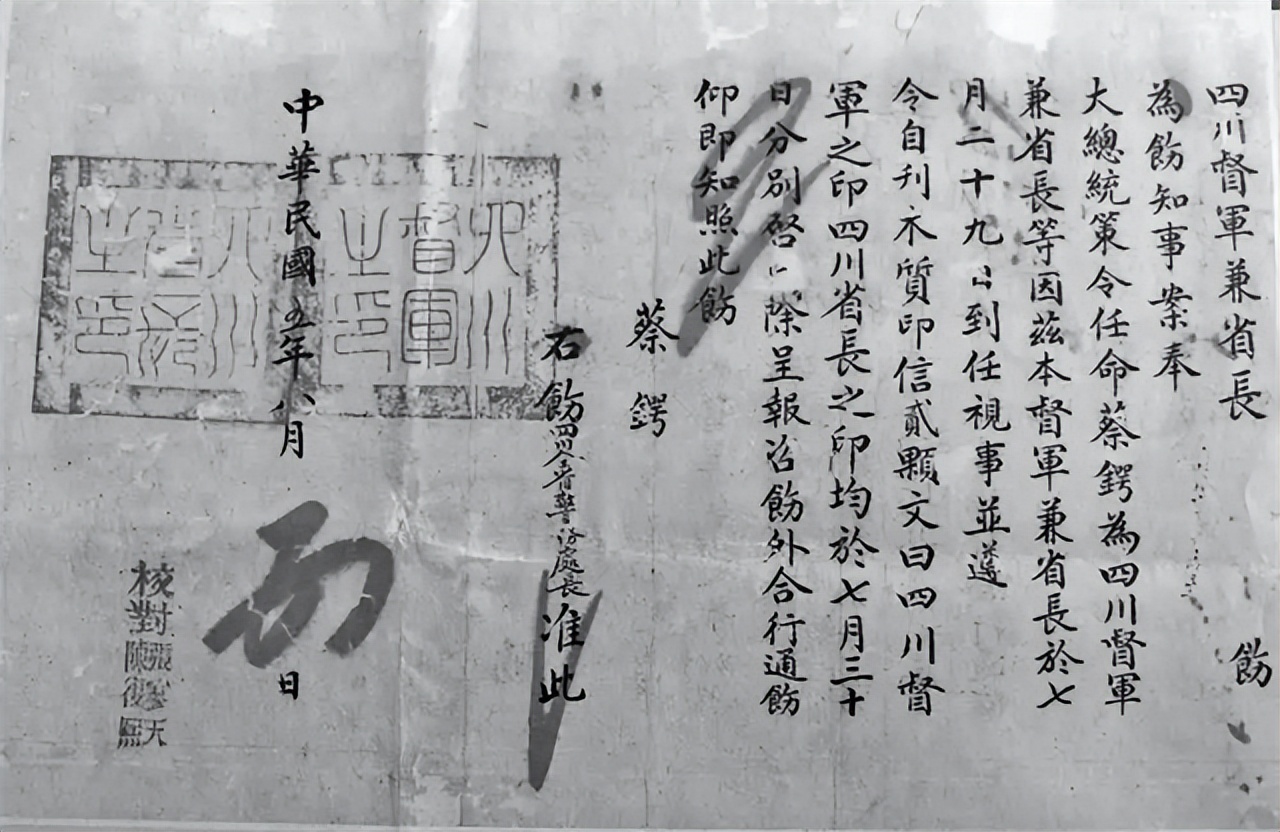 四川督軍兼省長 飭
為飭知事案奉
大總統策令任命蔡鍔為四川督軍
兼省長等因茲本督軍兼省長於七
月二十九日到任視事並遵
令自刊木質印信貳顆文曰四川督
軍之印四川省長之印均於七月三十
日分別啓口除呈報咨飭外合行通飭
仰即知照此飭
蔡鍔
右飭四川全省警務處長准此
四川督軍之印
四川省長之印
中華民國五年八月 日
核對
陳復熙